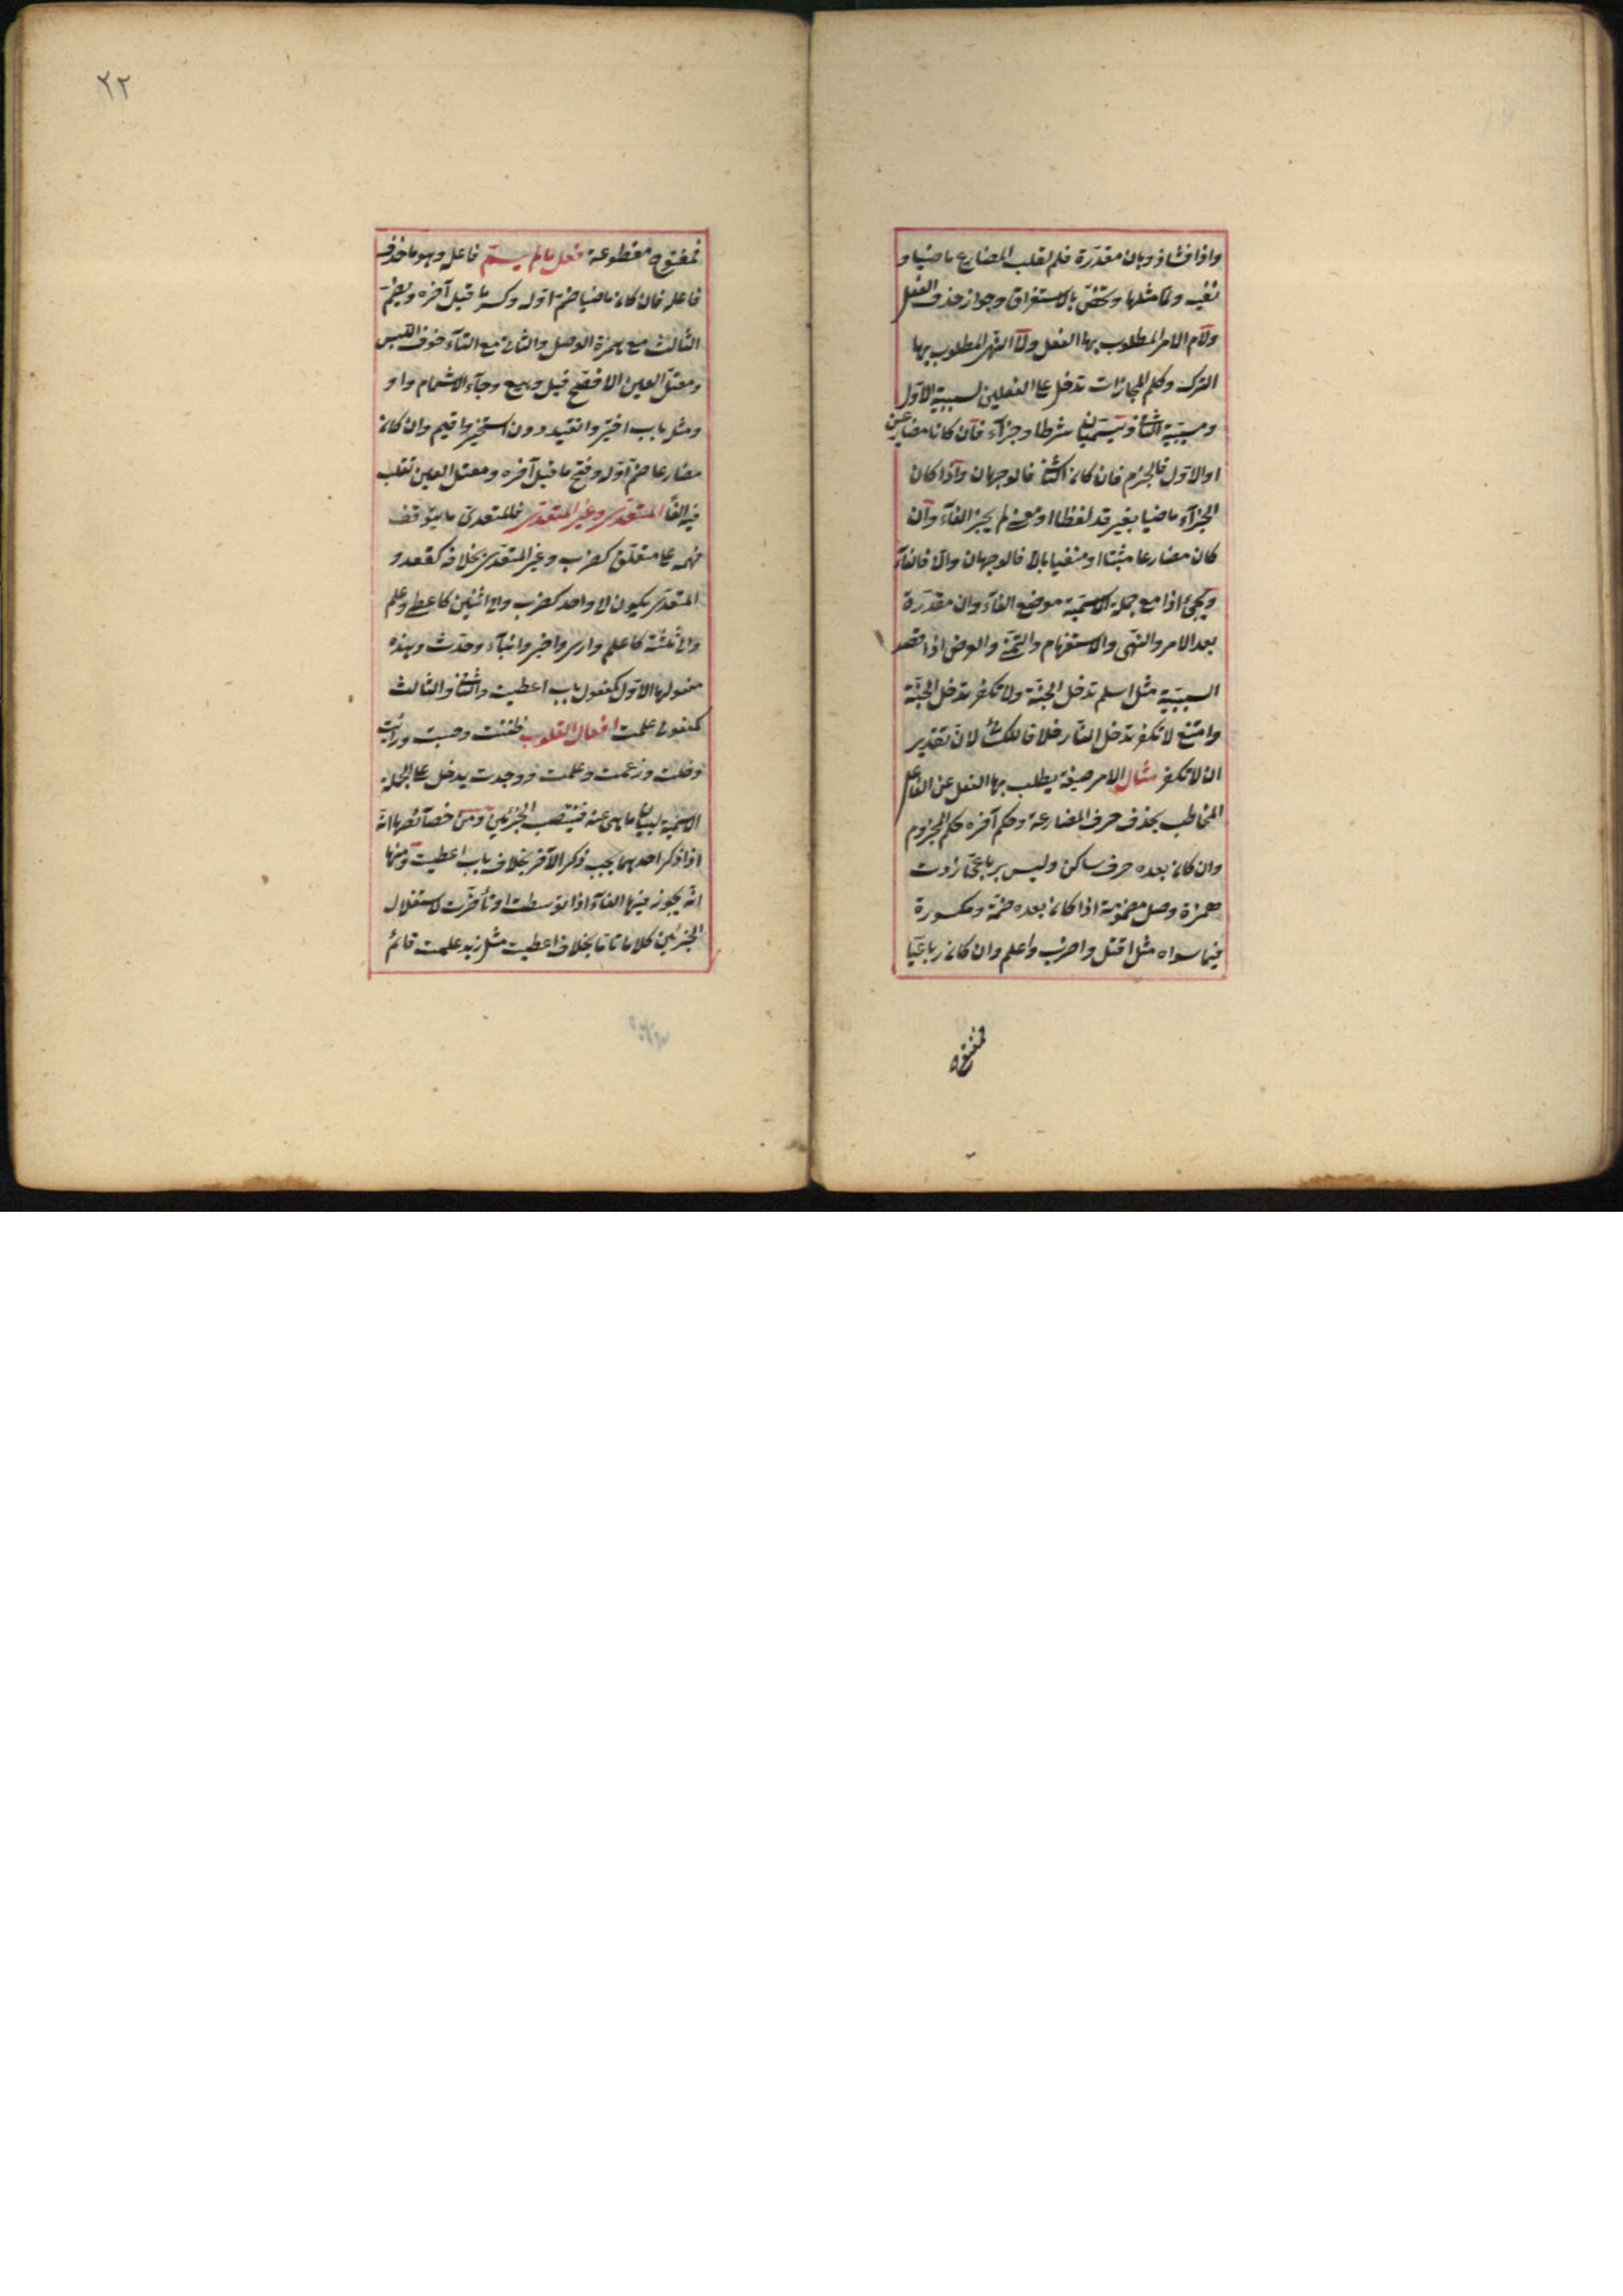 واذا فشاذ وبان مقدرة فلم لقلب المضارع ماضيا و
نفيه ولما مثلها وتختص بالاستغراق وجواز حذف الفعل
ولام الامر المطلوب بها الفعل ولا النهى المطلوب بها
الترك وكلم المجازات تدخل على الفعلين لسببية الاول
ومسببية الثانى وتسميان شرطا وجزآء فان كانا مضارعين
او الاول فالجزم فان كان الثانى فالوجهان واذا كان
الجزآء ماضيا بغير قد لفظا او معنى لم يجز الفآء وان
كان مضارعا مثبتا او منفيا بلا فالوجهان والا فالفآء
ويجئ اذا مع جملة الاسمية موضع الفآء وان مقدرة
بعد الامر والنهى والاستفهام والتمنى والعرض اذا قصد
السببية مثل اسلم تدخل الجنة ولا تكفر تدخل الجنة
وامتنع لا تكفر تدخل النار خلافا للكسائى لان تقدير
ان لا تكفر مثال الامر صيغة يطلب بها الفعل عن الفاعل
المخاطب بحذف حرف المضارعة وحكم آخره حكم المجزوم
وان كان بعده حرف ساكن وليس برباعى زدت
همزة وصل مضمومة اذا كان بعده ضمة ومكسورة
فيما سواه مثل اقتل واضرب واعلم وان كان رباعيا
فمفتوحة
٢٢
فمفتوحة مقطوعة فعل مالم يسم فاعله وهو ما حذف
فاعله فان كان ماضيا ضم اوله وكسر ما قبل آخره ويضم
الثالث مع همزة الوصل والثانى مع التآء خوف اللبس
ومعتل العين الافصح قيل وبيع وجآء الاشمام واو
ومثل باب اختير وانقيد دون استخير واقيم وان كان
مضارعا ضم اوله وفتح ما قبل آخره ومعتل العين تقلب
فيه الفا المتعدى وغير المتعدى فالمتعدى ما يتوقف
فهمه على متعلق كضرب وغير المتعدى بخلافه كقعد و
المتعدى يكون الى واحد كضرب والى اثنين كاعطى وعلم
والى ثلثة كاعلم وارى واخبر وانبآء وحدث وهذه
مفعولها الاول كمفعول باب اعطيت والثانى والثالث
كمفعولى علمت افعال القلوب ظننت وحسبت ورأيت
وخلت وزعمت وعلمت ووجدت يدخل على الجملة
الاسمية لبيان ما هى عنه فينتصب الجزئين ومن خصآئصها انه
اذا ذكر احدهما يجب ذكر الآخر بخلاف باب اعطيت ومنها
انه يجوز فيها الغآء اذا توسطت او تأخرت لاستقلال
الجزئين كلاما تاما بخلاف اعطيت مثل زيد علمت قائم